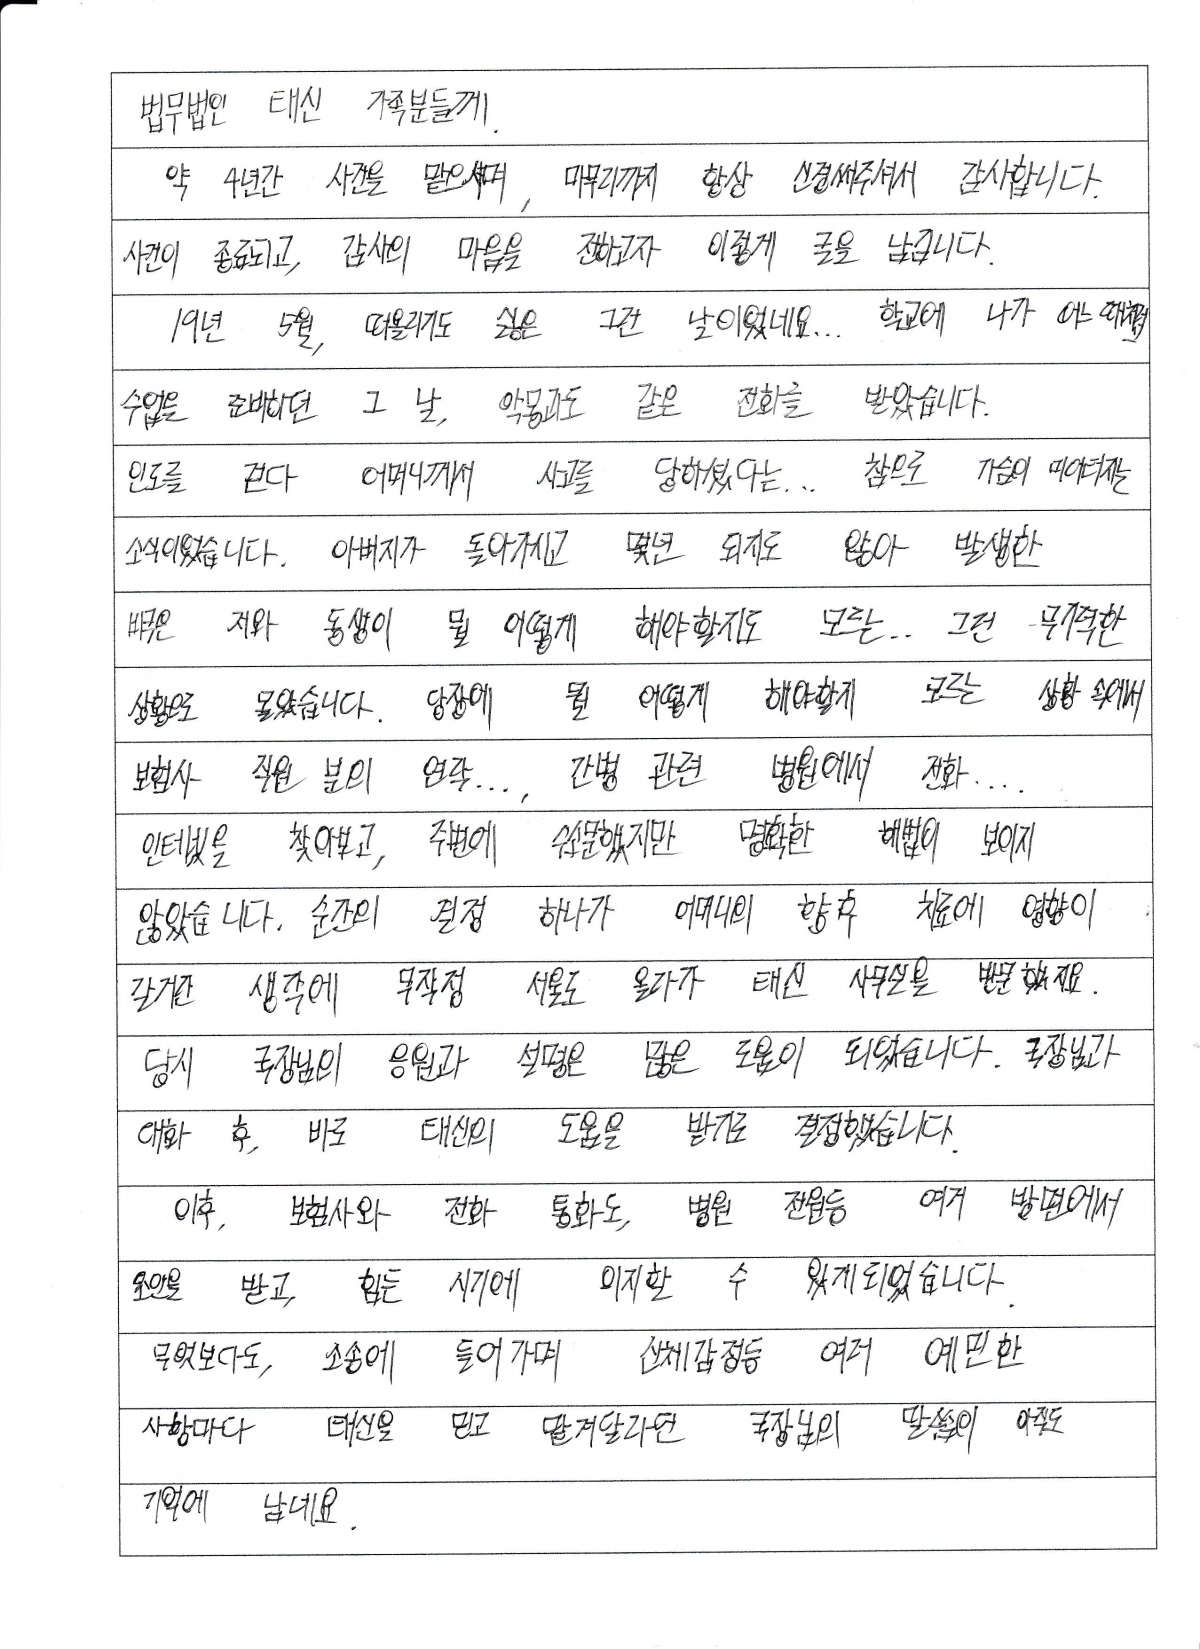 법무법인 태신 가족분들께.
약 4년간 사건을 맡으시며, 마무리까지 항상 신경써주셔서 감사합니다.
사건이 종료되고, 감사의 마음을 전하고자 이렇게 글을 남깁니다.
19년 5월, 떠올리기도 싫은 그런 날이었네요... 학교에 나가 어느 때처럼
수업을 준비하던 그 날, 악몽과도 같은 전화를 받았습니다.
인도를 걷다 어머니께서 사고를 당하셨다는... 참으로 가슴이 미어터지는
소식이었습니다. 아버지가 돌아가시고 몇년 되지도 않아 발생한
저와 동생이 뭘 어떻게 해야할지도 모르는... 그런 무기력한
상황으로 몰았습니다. 당장에 뭘 어떻게 해야할지 모르는 상황 속에서
보험사 직원 분의 연락..., 간병 관련 병원에서 전화....
인테넷을 찾아보고, 주변에 수소문했지만 명확한 해법이 보이지
않았습니다. 순간의 결정 하나가 어머니의 향후 치료에 영향이
갈거란 생각에 무작정 서울로 올라가 태신 사무실을 방문했지요.
당시 국장님의 응원과 설명은 많은 도움이 되었습니다. 국장님과
대화 후, 바로 태신의 도움을 받기로 결정했습니다.
이후, 보험사와 전화 통화도, 병원 전원등 여러 방면에서
조언을 받고, 힘든 시기에 의지할 수 있게되었습니다.
무엇보다도, 소송에 들어가며 신체감정등 여러 예민한
사항마다 태신을 믿고 맡겨달라던 국장님의 말씀이 아직도
기억에 남네요.